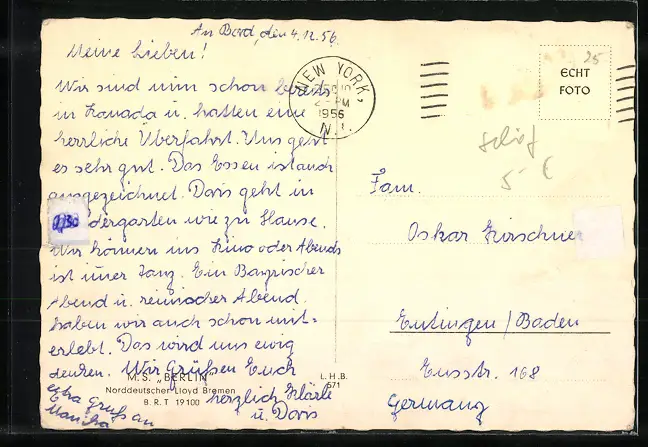 An Bord, den 4.12.56.
Meine Lieben!
Wir sind nun schon bereits
in Kanada u. hatten eine
herrliche Überfahrt. Uns geht
es sehr gut. Das Essen ist auch
ausgezeichnet. Doris geht in
dergarten wie zu Hause.
Wir können ins Kino oder Abends
ist imer Tanz. Ein Bayrischer
Abend u. reinischer Abend
haben wir auch schon mit=
erlebt. Das wird uns ewig
denken. Wir Grüßen Euch
herzlich Klärle
u. Doris
Extra Gruß an
Monika
M.S. „BERLIN"
Norddeutscher Lloyd Bremen
B.R.T 19100
L.H.B.
571
NEW YORK,
PM
1956
N.Y.
25
ECHT
FOTO
Schiff
5 €
Fam.
Oskar Kirschner
Eutingen/Baden
Enzstr. 168
Germany